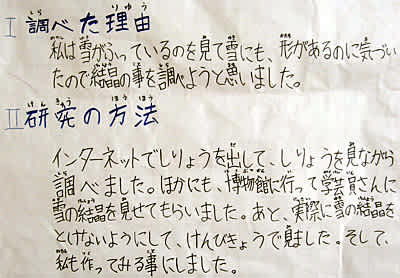 I 調べた理由
私は雪がふっているのを見て雪にも、形があるのに気づい
たので結晶の事を調べようと思いました。
II 研究の方法
インターネットでしりょうを出して、しりょうを見ながら
調べました。ほかにも、博物館に行って学芸員さんに
雪の結晶を見せてもらいました。あと、実際に雪の結晶を
とけないようにして、けんびきょうで見ました。そして、
私も作ってみる事にしました。